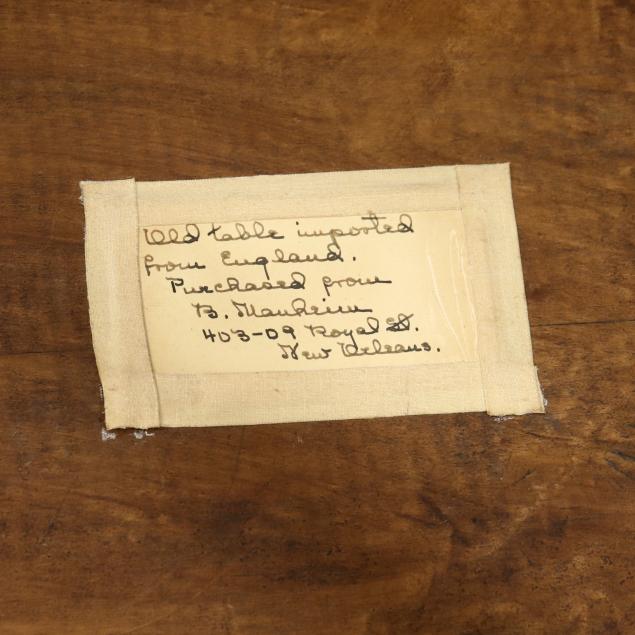 Old table imported
from England.
Purchased from
B. Manheim
403-09 Royal St.
New Orleans.